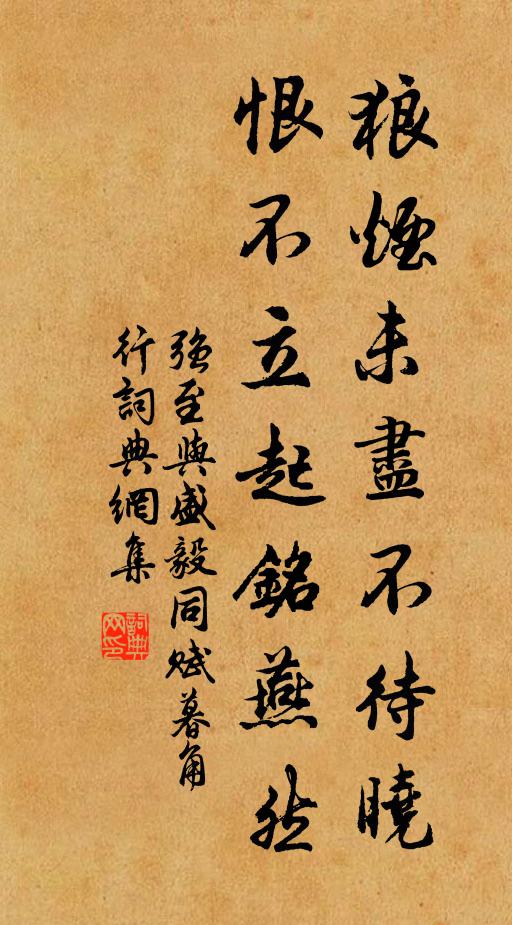 狼煙未盡不待曉
恨不立起銘燕然
強至與盛毅同賦暮角
行詞典網集
詞典網印